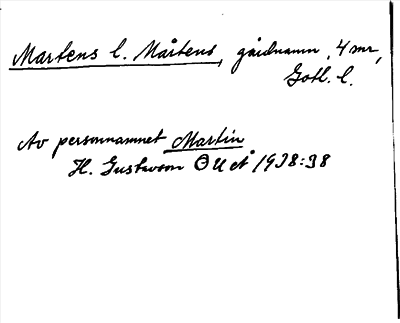 Martens l. Mårtens, gårdnamn, 4 mr,
Gotl. l.
Av personnamnet Martin
H. Gustavson OUÅ 1938:98